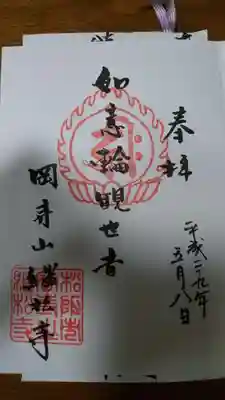 奉拝
平成二十九年
五月八日
如意輪観世音
岡寺山継松寺